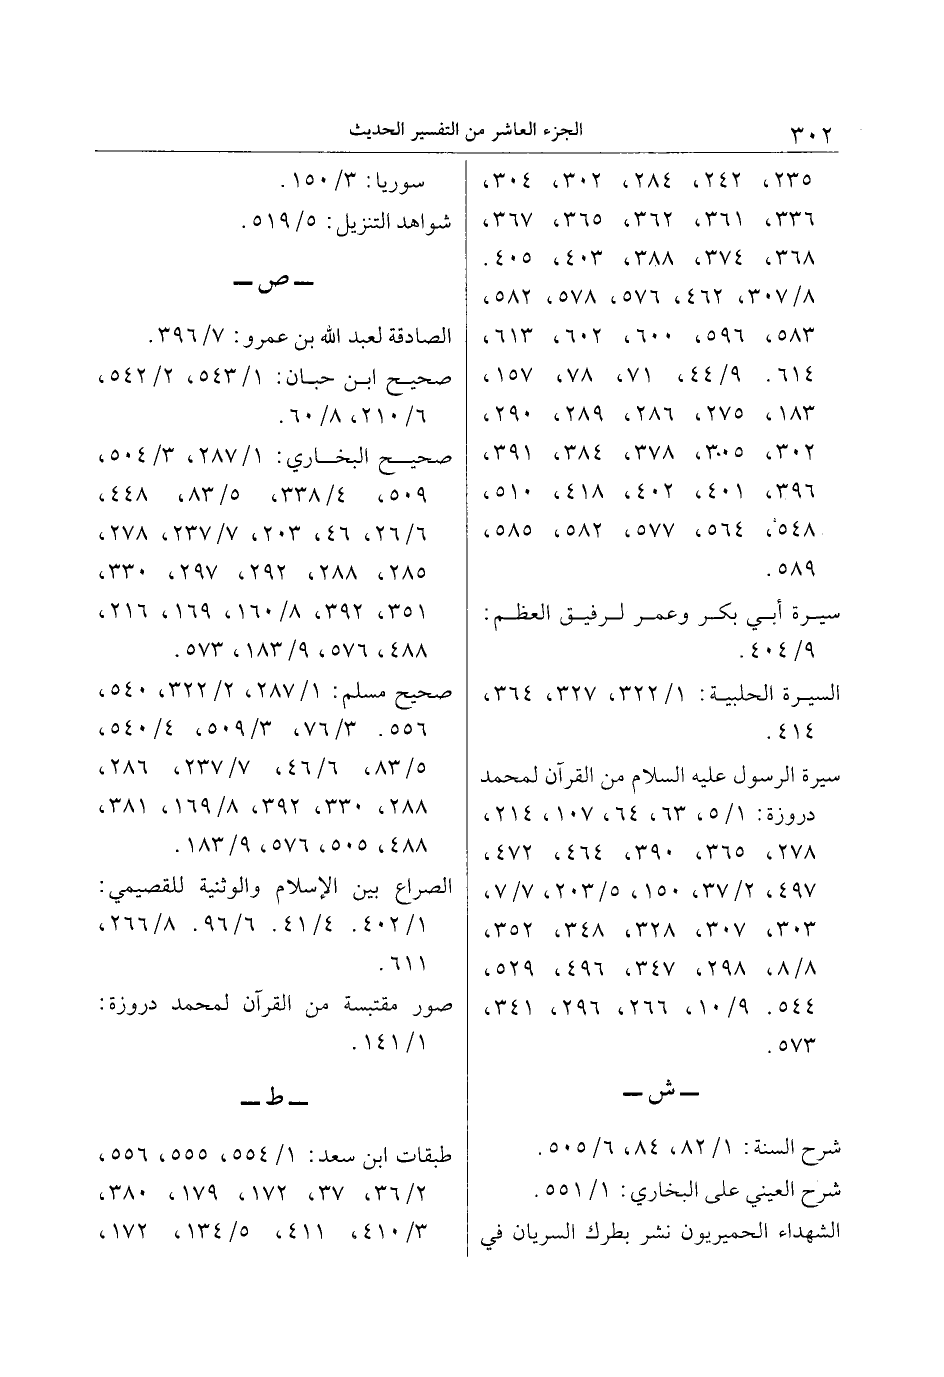 ٣٠٢
الجزء العاشر من التفسير الحديث
٢٣٥، ٢٤٢، ٢٨٤، ٣٠٢، ٣٠٤،
٣٣٦، ٣٦١، ٣٦٢، ٣٦٥، ٣٦٧،
٣٦٨، ٣٧٤، ٣٨٨، ٤٠٣، ٤٠٥.
٨/ ٣٠٧، ٤٦٢، ٥٧٦، ٥٧٨، ٥٨٢،
٥٨٣، ٥٩٦، ٦٠٠، ٦٠٢، ٦١٣،
٦١٤. ٩/ ٤٤، ٧١، ٧٨، ١٥٧،
١٨٣، ٢٧٥، ٢٨٦، ٢٨٩، ٢٩٠،
٣٠٢، ٣٠٠٥، ٣٧٨، ٣٨٤، ٣٩١،
٣٩٦، ٤٠١، ٤٠٢، ٤١٨، ٥١٠،
٥٤٨، ٥٦٤، ٥٧٧، ٥٨٢، ٥٨٥،
٥٨٩.
سيرة أبي بكر وعمر لرفيق العظم:
٩/ ٤٠٤.
السيرة الحلبية: ١/ ٣٢٢، ٣٢٧، ٣٦٤،
٤١٤.
سيرة الرسول عليه السلام من القرآن لمحمد
دروزة: ١/ ٥، ٦٣، ٦٤، ١٠٧، ٢١٤،
٢٧٨، ٣٦٥، ٣٩٠، ٤٦٤، ٤٧٢،
٤٩٧، ٢/ ٣٧، ١٥٠، ٥/ ٢٠٣، ٧/ ٧،
٣٠٣، ٣٠٧، ٣٢٨، ٣٤٨، ٣٥٢،
٨/ ٨، ٢٩٨، ٣٤٧، ٤٩٦، ٥٢٩،
٥٤٤. ٩/ ١٠، ٢٦٦، ٢٩٦، ٣٤١،
٥٧٣.
ـ ش ـ
شرح السنة: ١/ ٨٢، ٨٤، ٦/ ٥٠٥.
شرح العيني على البخاري: ١/ ٥٥١.
الشهداء الحميريون نشر بطرك السريان في
سوريا: ٣/ ١٥٠.
شواهد التنزيل: ٥/ ٥١٩.
ـ ص ـ
الصادقة لعبد الله بن عمرو: ٧/ ٣٩٦.
صحيح ابن حبان: ١/ ٥٤٣، ٢/ ٥٤٢،
٦/ ٢١٠، ٨/ ٦٠.
صحيح البخاري: ١/ ٢٨٧، ٣/ ٥٠٤،
٥٠٩، ٤/ ٣٣٨، ٥/ ٨٣، ٤٤٨،
٦/ ٢٦، ٤٦، ٢٠٣، ٧/ ٢٣٧، ٢٧٨،
٢٨٥، ٢٨٨، ٢٩٢، ٢٩٧، ٣٣٠،
٣٥١، ٣٩٢، ٨/ ١٦٠، ١٦٩، ٢١٦،
٤٨٨، ٥٧٦، ٩/ ١٨٣، ٥٧٣.
صحيح مسلم: ١/ ٢٨٧، ٢/ ٣٢٢، ٥٤٠،
٥٥٦. ٣/ ٧٦، ٣/ ٥٠٩، ٤/ ٥٤٠،
٥/ ٨٣، ٦/ ٤٦، ٧/ ٢٣٧، ٢٨٦،
٢٨٨، ٣٣٠، ٣٩٢، ٨/ ١٦٩، ٣٨١،
٤٨٨، ٥٠٥، ٥٧٦، ٩/ ١٨٣.
الصراع بين الإسلام والوثنية للقصيمي:
١/ ٤٠٢. ٤/ ٤١. ٦/ ٩٦. ٨/ ٢٦٦،
٦١١.
صور مقتبسة من القرآن لمحمد دروزة:
١/ ١٤١.
ـ ط ـ
طبقات ابن سعد: ١/ ٥٥٤، ٥٥٥، ٥٥٦،
٢/ ٣٦، ٣٧، ١٧٢، ١٧٩، ٣٨٠،
٣/ ٤١٠، ٤١١، ٥/ ١٣٤، ١٧٢،